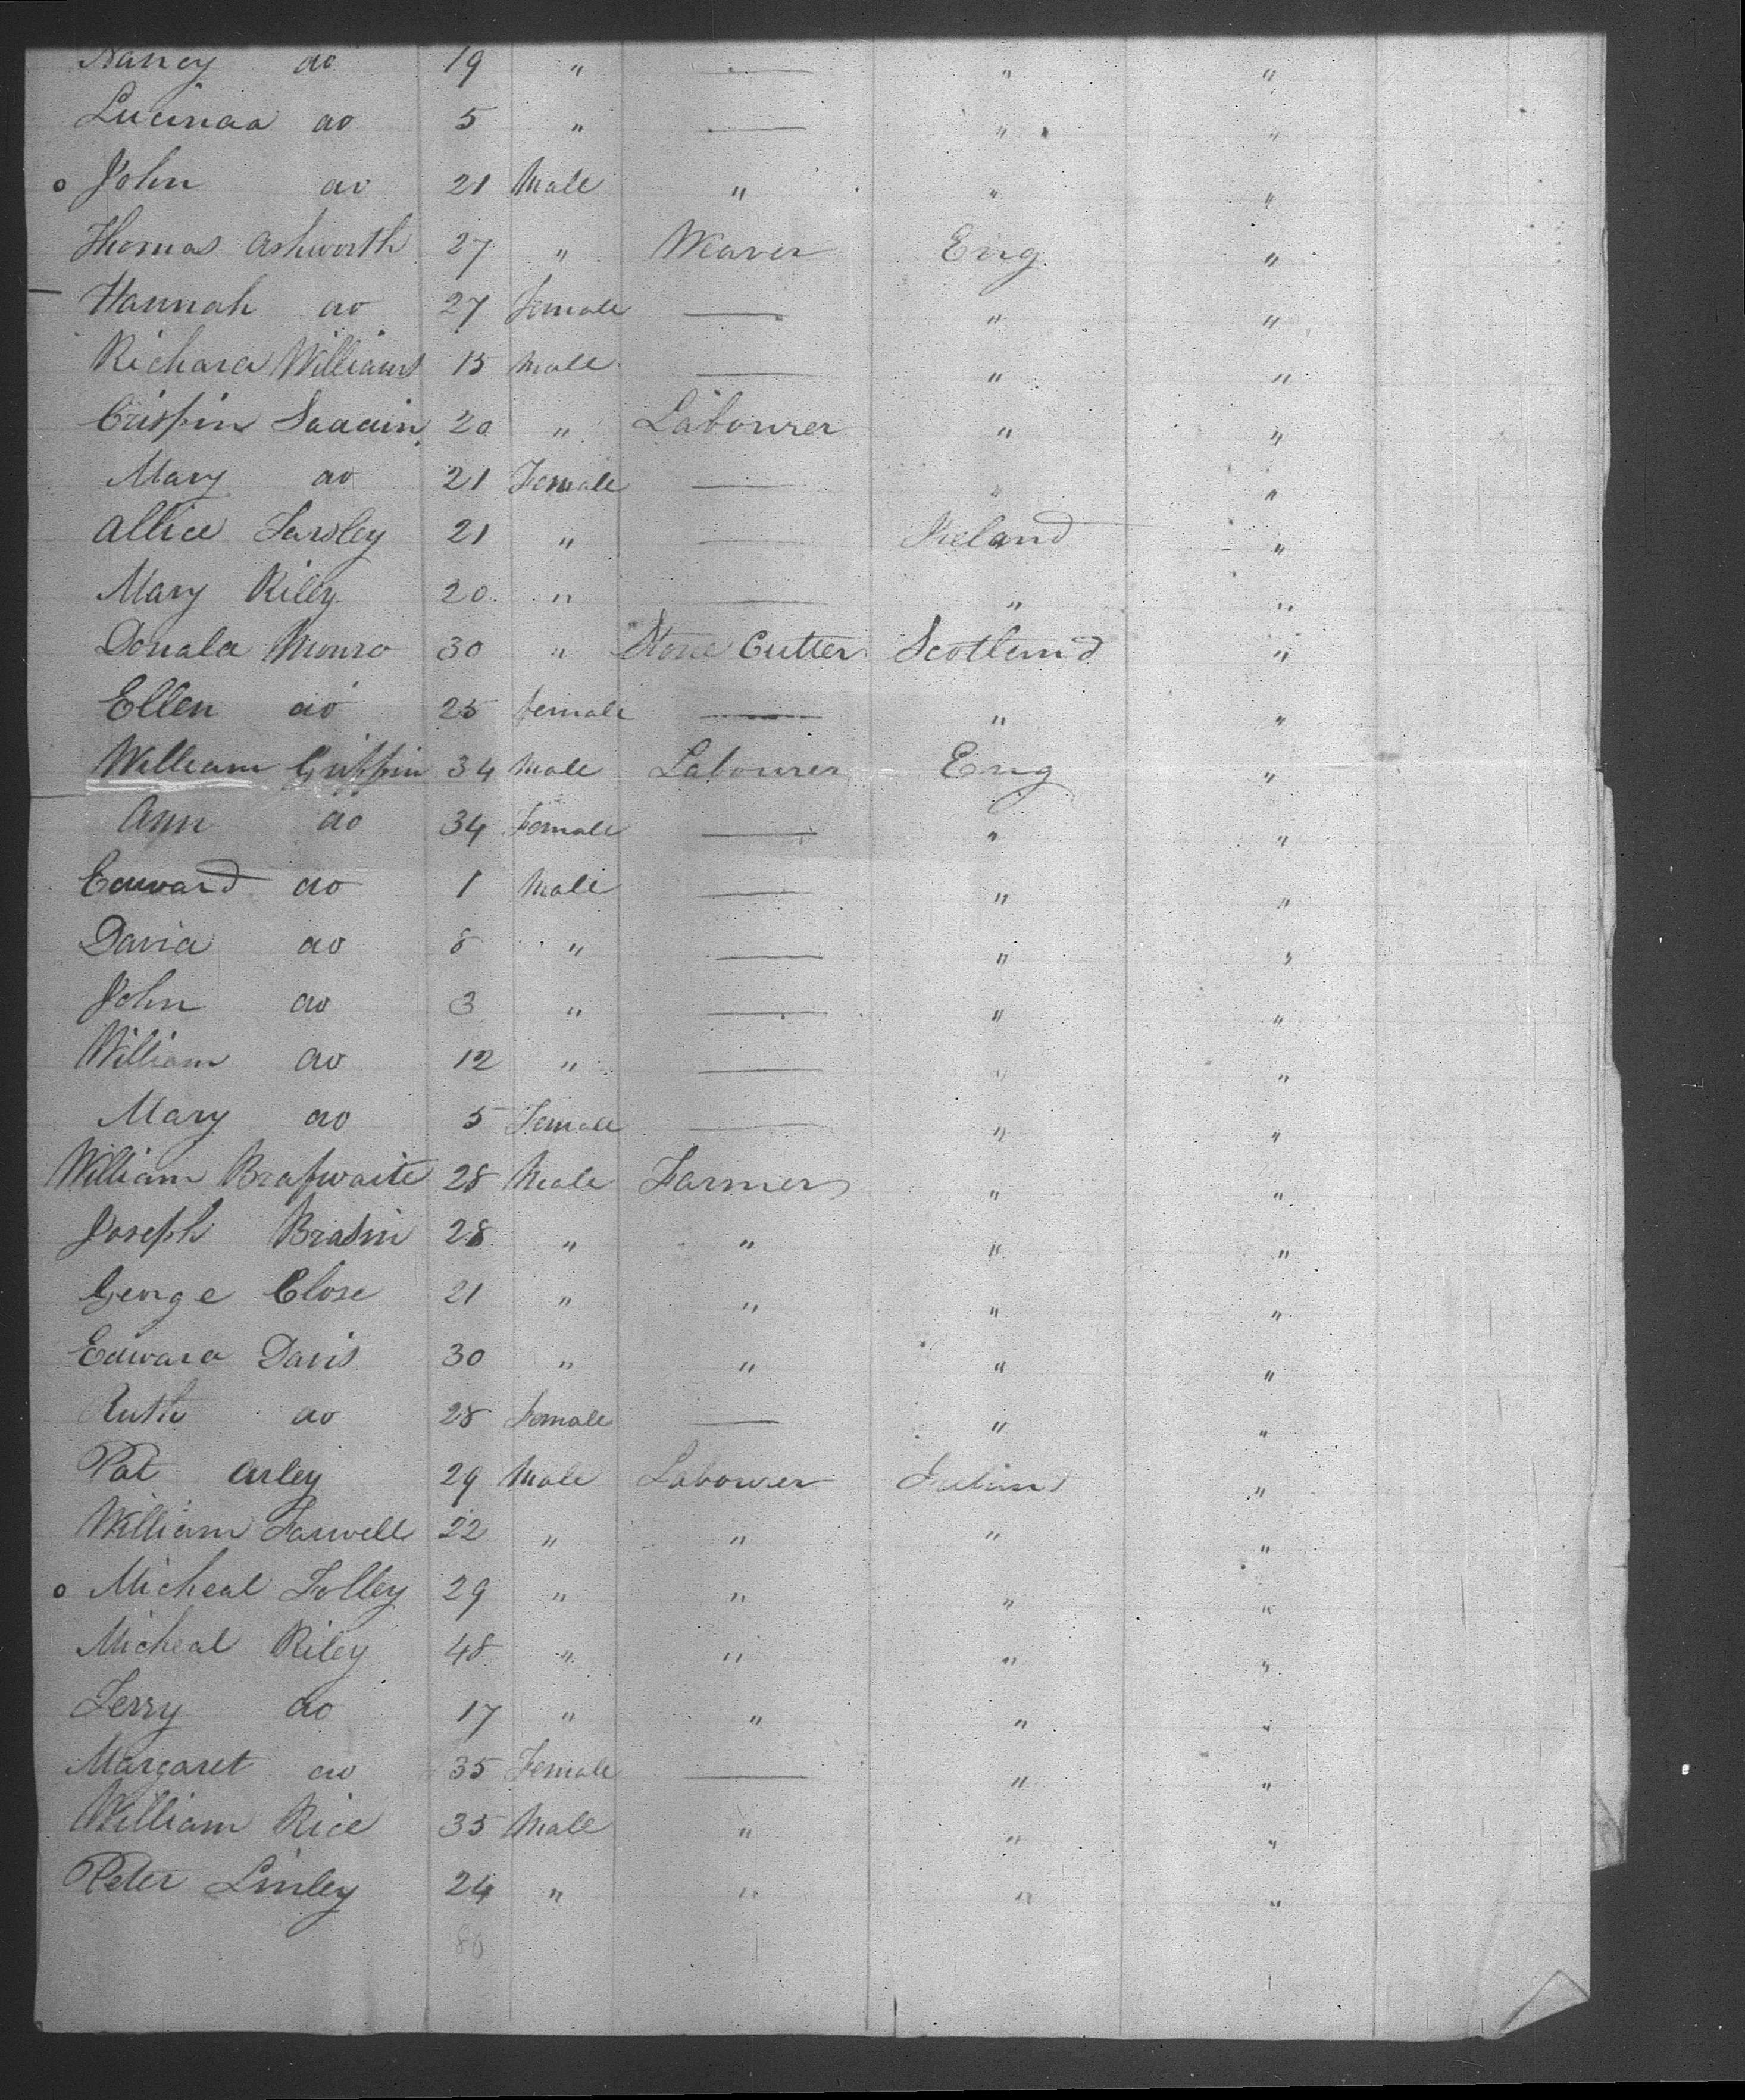 Nancy do 19 " — " "
Lucinda do 5 " — " "
o John do 21 Male " " "
Thomas Ashworth 27 " Weaver Eng. "
Hannah do 27 Female — " "
Richard Williams 15 Male — " "
Crispin 20 " Labourer " "
Mary do 21 Female — " "
Allice 21 " — Ireland "
Mary Riley 20 " — " "
Donald Munro 30 " Stone Cutter Scotland "
Ellen do 25 female — " "
William Griffin 34 Male Labourer Eng "
Ann do 34 Female — " "
Edward do 1 Male — " "
David do 8 " — " "
John do 3 " — " "
William do 12 " — " "
Mary do 5 Female — " "
William 28 Male Farmer " "
Joseph 28 " " " "
George Close 21 " " " "
Edward Davis 30 " " " "
Ruth do 28 Female — " "
Pat 29 Male Labourer Ireland "
William 22 " " " "
o Micheal 29 " " " "
Micheal Riley 48 " " " "
Terry do 17 " " " "
Margaret do 35 Female — " "
William Rice 35 Male " " "
Peter Linley 24 " " " "
80